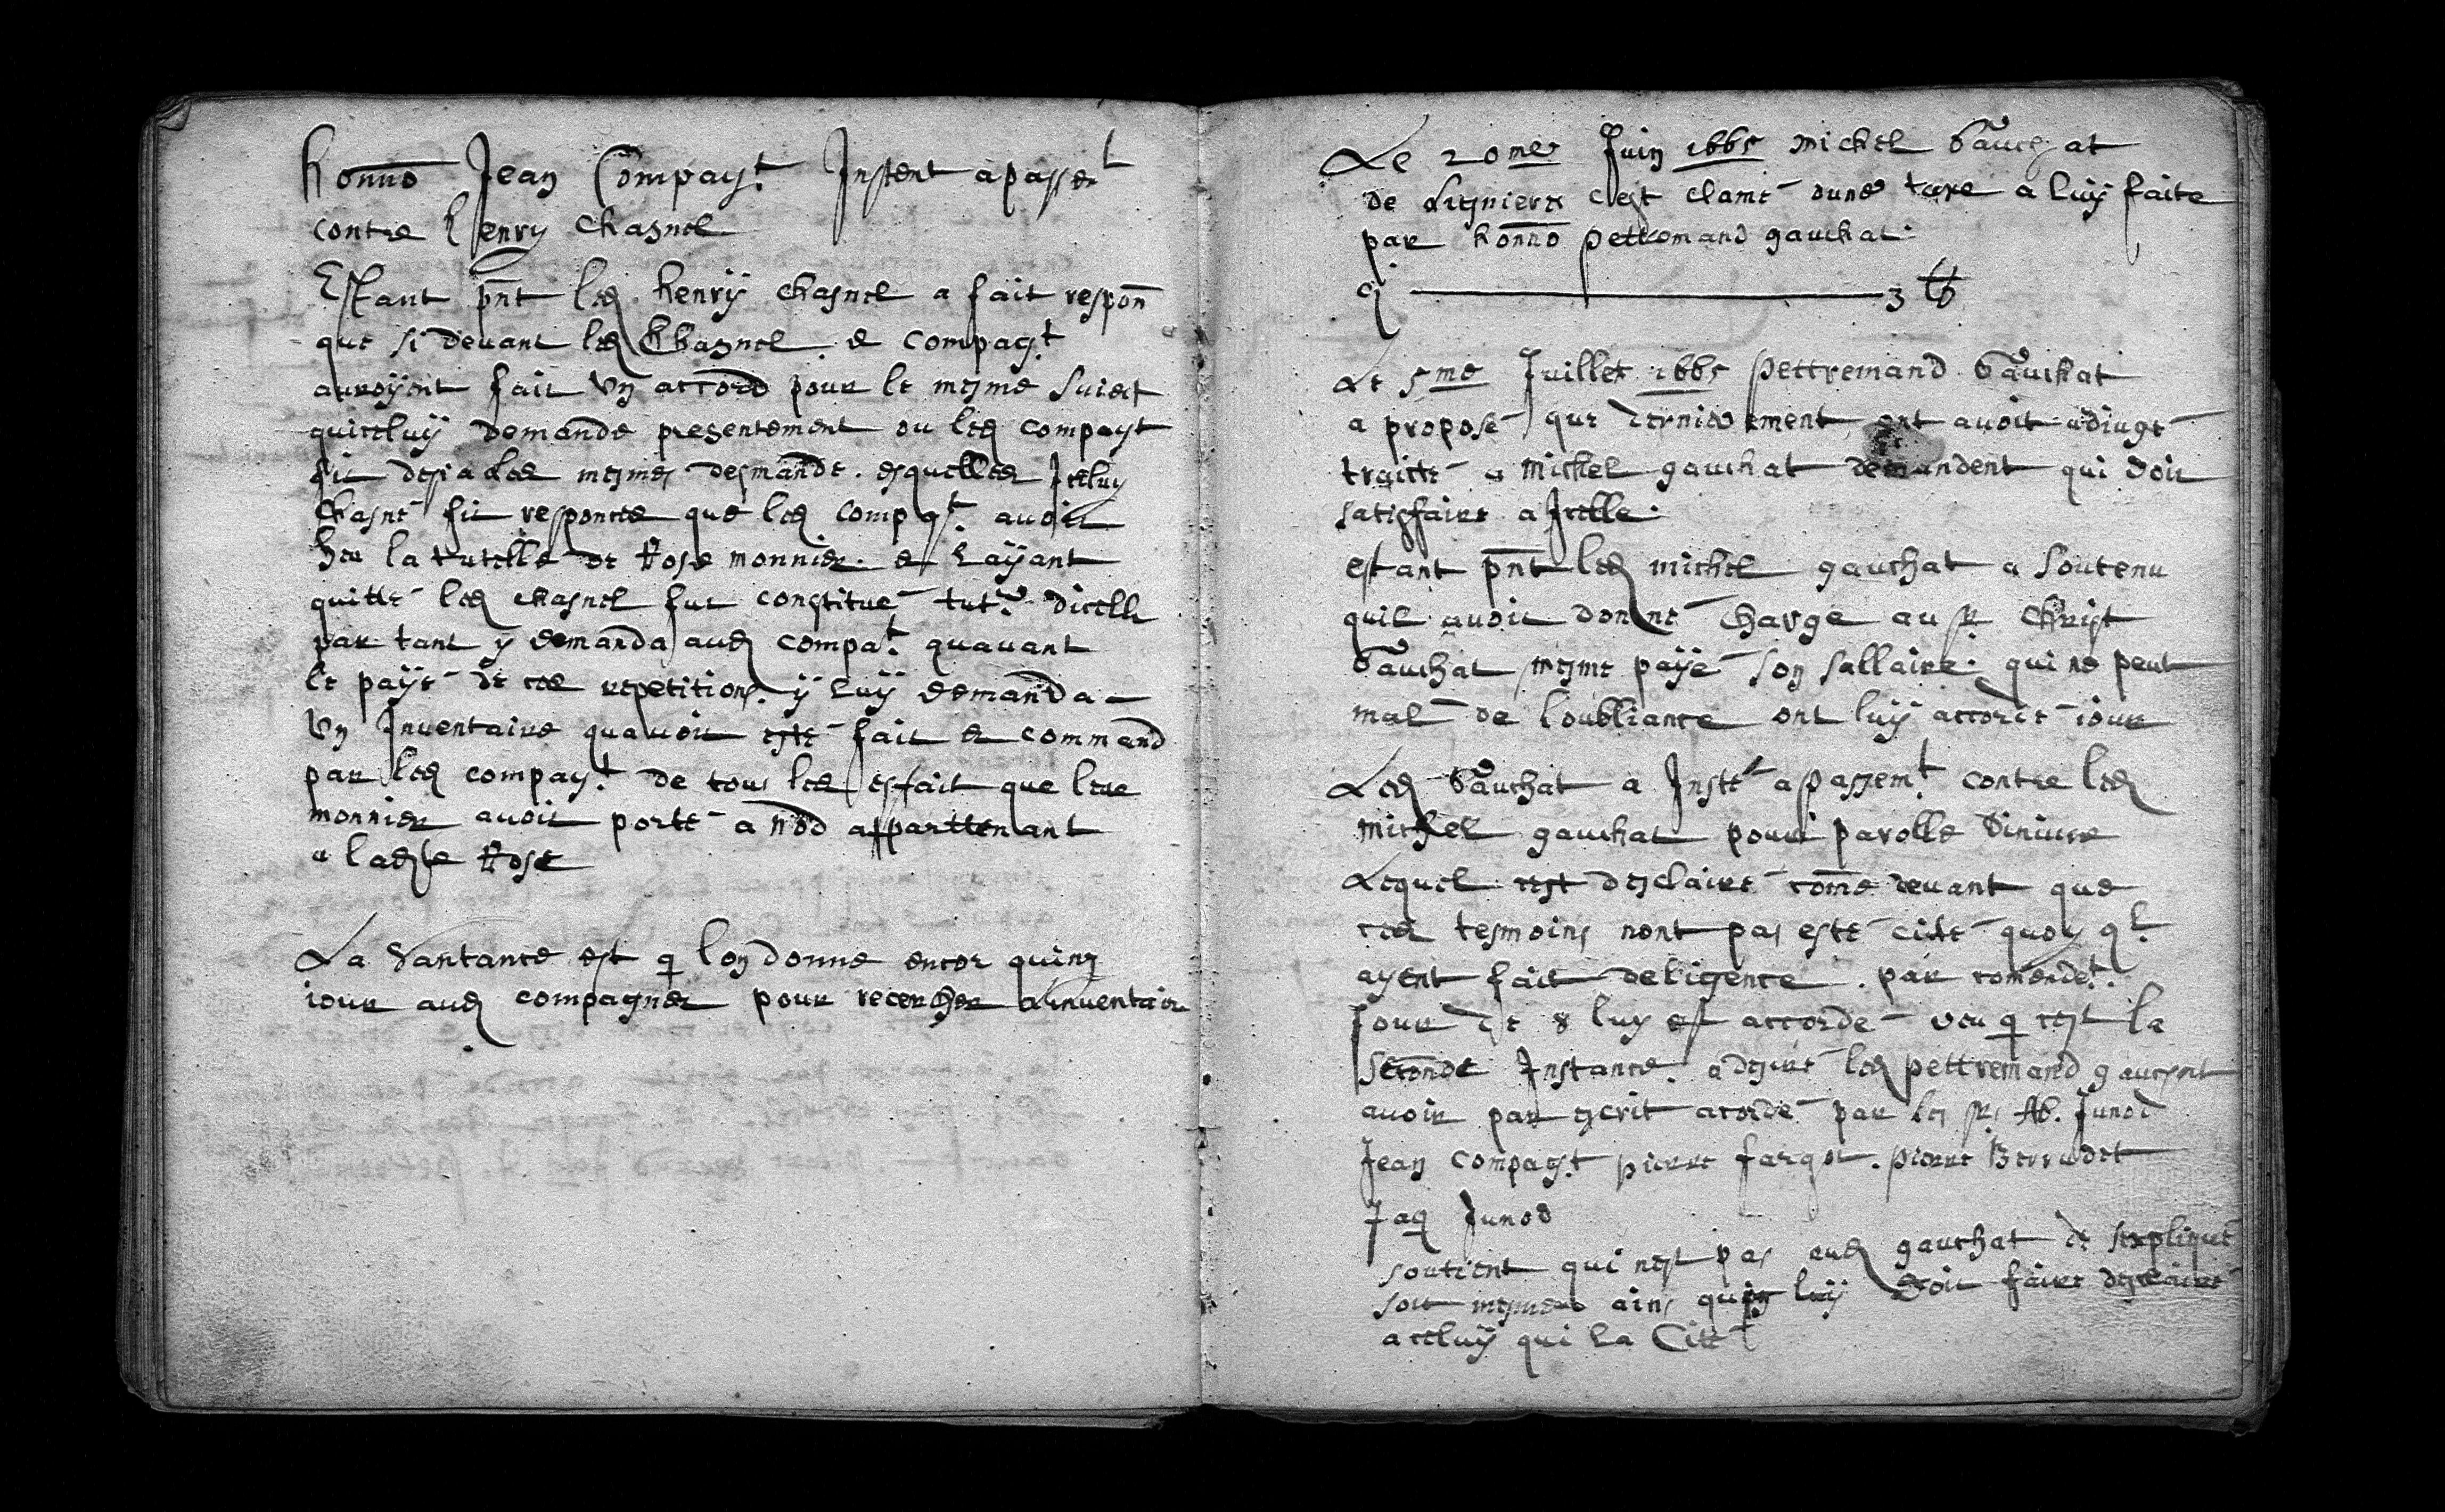 honno Jean Compagt Instent a passent
contre henry Chasnel
Estant pnt led henrÿ Chasnel a fait respon
que si devant led Chasnel. & compagt
auroÿent fait Un accord pour le mesme Suiect
quiceluÿ demande presentement ou led compagt
fit desia les mesmes desmande. esquelles Iceluy
Chasne fit responce que led compagt avoit
heu la tutelle de Rose monnier. & laÿant
quitte led chasnel fut constitue tutr dicelle
par tant y demanda aud compat quavant
le paÿe de ces repetitions. ÿ luÿ demanda
Un Inventaire quavoit esté fait & command
par led compagt de tous les esfait que leur
monnier avoit porté a nod appartenant
a ladte Rose
La Santance est q lon donne encor quinz
iour aud compagnet pour recercher linventair
Le 20me Juin 1665 michel Gauchat
de Lignieres cest clame dune taxe a luÿ faite
par honno pettremand gauchat.
cÿ 3 lb
Le 5me Juillet 1665 pettremand Gauchat
a proposé que dernierement ont avoit adiugé
traitté a michel gauchat demandent qui doit
satisfaire a Icelle.
estant pnt led michel gauchat a Soutenu
quil avoit donné charge au sr Christ
Gauchat mesme paÿé son sallaire. qui ne peut
mal de loubliance ont luÿ accorde iour
Led Gauchat a Insté a passemt contre led
michel gauchat pour parolle diniure
Lequel cest desclairé come devant que
ces tesmoins nont pas esté cité quoy qt
ayent fait deligence. par comendet.
Jour de 8 luy est accordé veu q cest la
seconde Instance. a desiré led pettremand gauchat
avoir par escrit acordé par les srs Ab. Junod
Jean Compagt pierre fargot. pierre Berrudet
Jaq Junod
soutient qui nest pas aud gauchat de sexpliqué
soit mesmes ains quon luÿ doit faire desclairé
a celuÿ qui la Citté